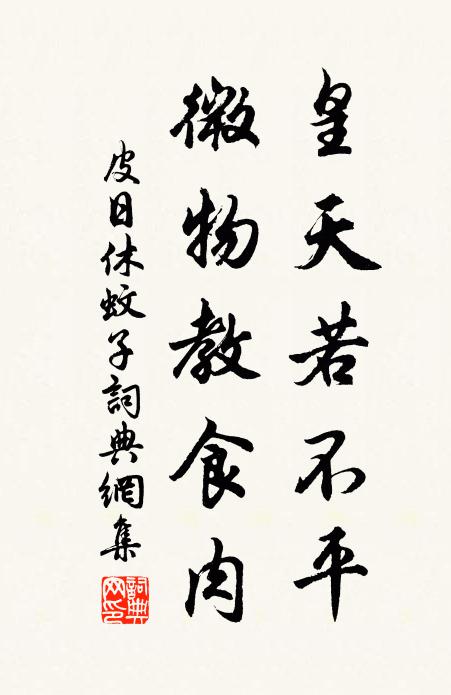 皇天若不平
微物教食肉
皮日休蚊子詞典網集
詞典網印